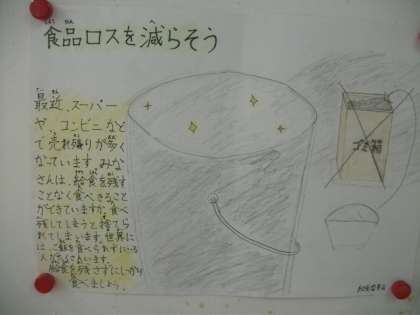 食品ロスを減らそう
最近、スーパー
や、コンビニなど
で売れ残りが多く
なっています。みな
さんは、給食を残す
ことなく食べきること
ができていますか。食べ
残してしまうと捨てら
れてしまいます。世界に
はご飯を食べられずにいる
人がたくさんいます。
給食を残さずにしっかり
食べましょう。
ゴミ箱